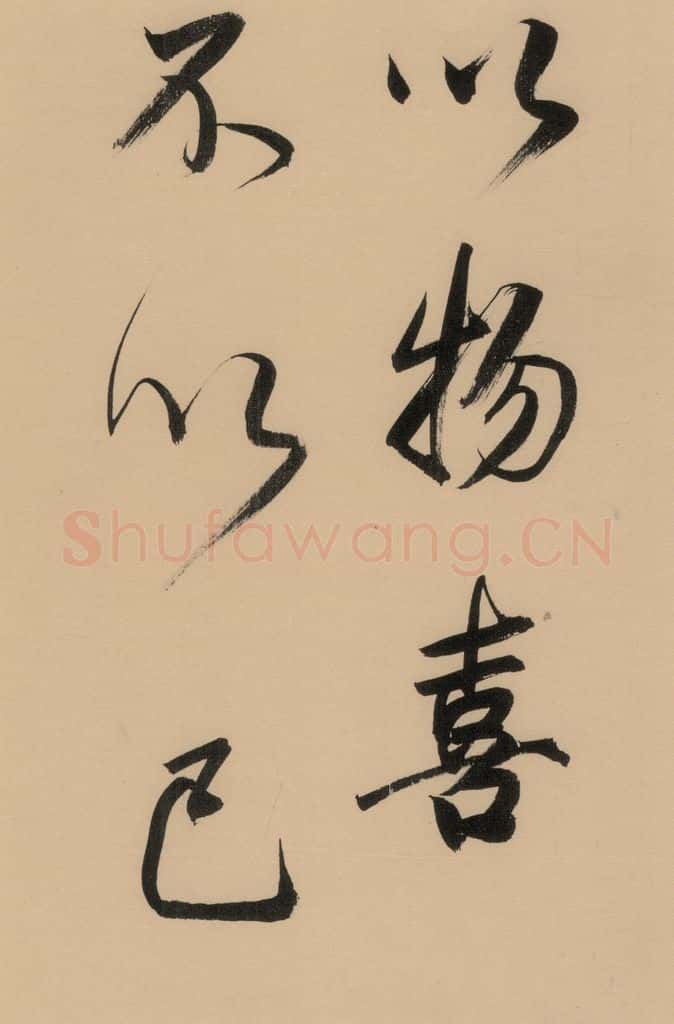 以物喜
不以己
Shufawang.CN